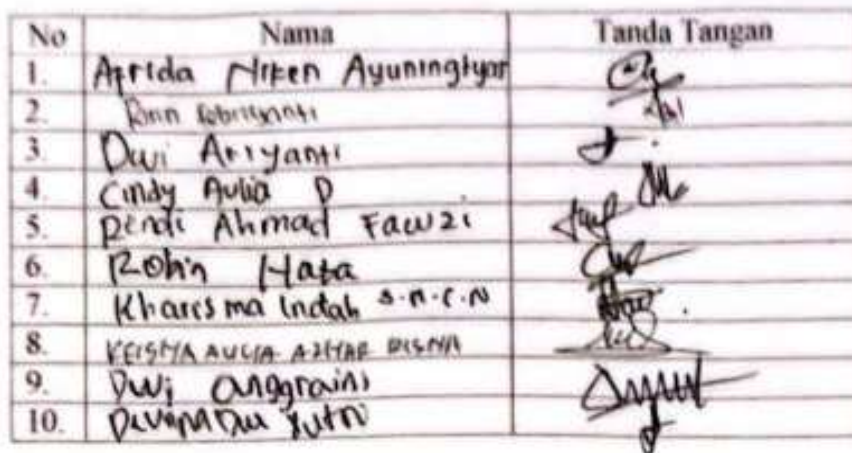 No Nama Tanda Tangan
1. Afrida Niken Ayuningtyas
2.
3. Dwi Ariyanti
4. Cindy Aulia P
5. Rendi Ahmad Fawzi
6. Rohin Hata
7. Kharisma Indah S.N.C.N
8. KEISYA AULIA AZHAR
9. Dwi anggraini
10. Putri